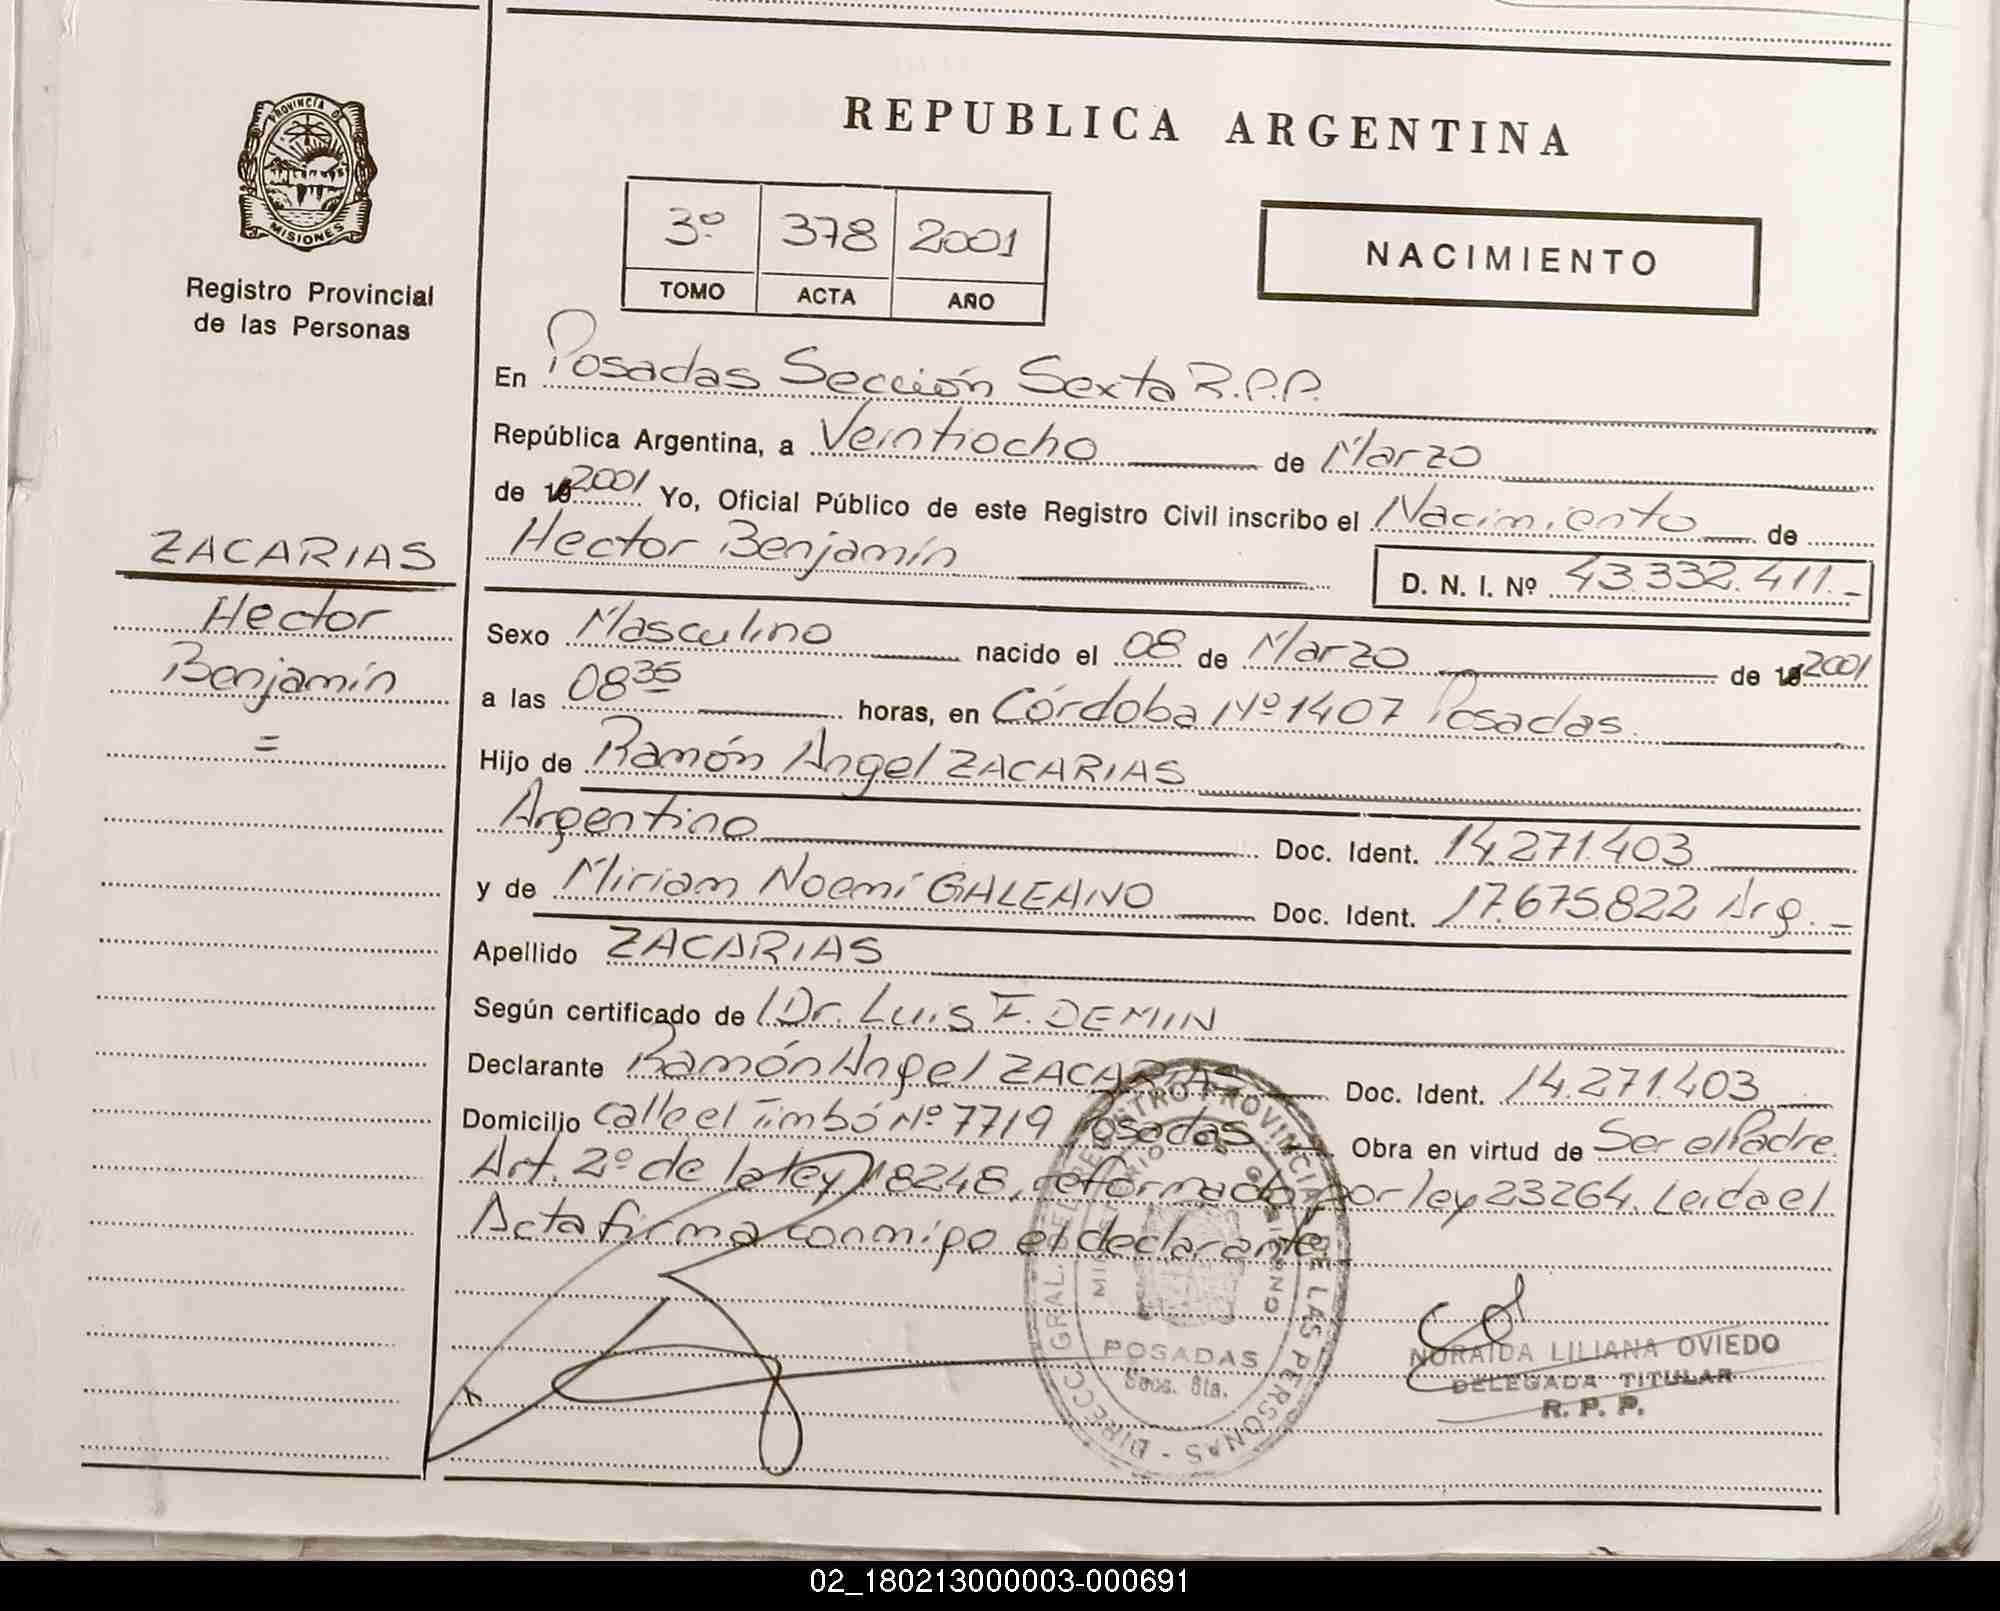 REPUBLICA ARGENTINA
PROVINCIA DE
MISIONES
Registro Provincial
de las Personas
3º 378 2001
TOMO ACTA AÑO
NACIMIENTO
ZACARIAS
Hector
Benjamín
=
En Posadas Sección Sexta R.P.P.
República Argentina, a Veintiocho de Marzo
de 2001 Yo, Oficial Público de este Registro Civil inscribo el Nacimiento de
Hector Benjamín D. N. I. Nº 43.332.411.-
Sexo Masculino nacido el 08 de Marzo de 2001
a las 08 35 horas, en Córdoba Nº 1407 Posadas.
Hijo de Ramón Angel ZACARIAS
Argentino Doc. Ident. 14.271.403
y de Miriam Noemí GALEANO Doc. Ident. 17.675.822 Arg.-
Apellido ZACARIAS
Según certificado de Dr. Luis F. DEMIN
Declarante Ramón Angel ZACARIAS Doc. Ident. 14.271.403
Domicilio Calle el Timbó Nº 7719 Posadas Obra en virtud de Ser el Padre.
Art. 2º de la ley 18248, reformado por ley 23264. Leida el
Acta firma conmigo el declarante.
DIRECC. GRAL. DEL REGISTRO PROVINCIAL DE LAS PERSONAS -
MINISTERIO DE GOBIERNO
POSADAS
Secc. 6ta.
NORAIDA LILIANA OVIEDO
DELEGADA TITULAR
R. P. P.
02_180213000003-000691